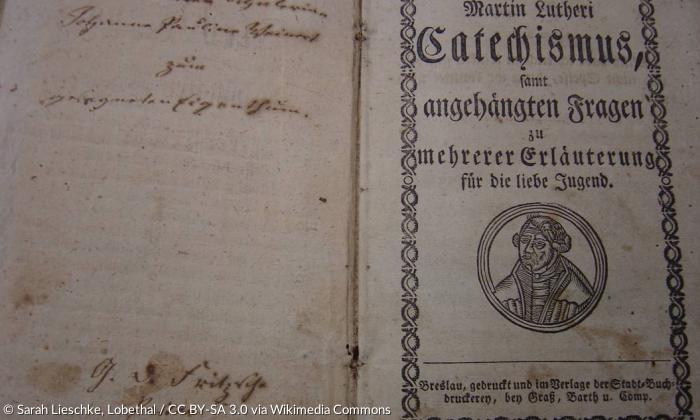 Johanne Pauline Weinert
zum
gesegneten Eigenthum.
Martin Lutheri
Catechismus,
samt
angehängten Fragen
zu
mehrerer Erläuterung
für die liebe Jugend.
Breslau, gedruckt und im Verlage der Stadt-Buch-
druckerey, bey Graß, Barth u. Comp.
© Sarah Lieschke, Lobethal / CC BY-SA 3.0 via Wikimedia Commons